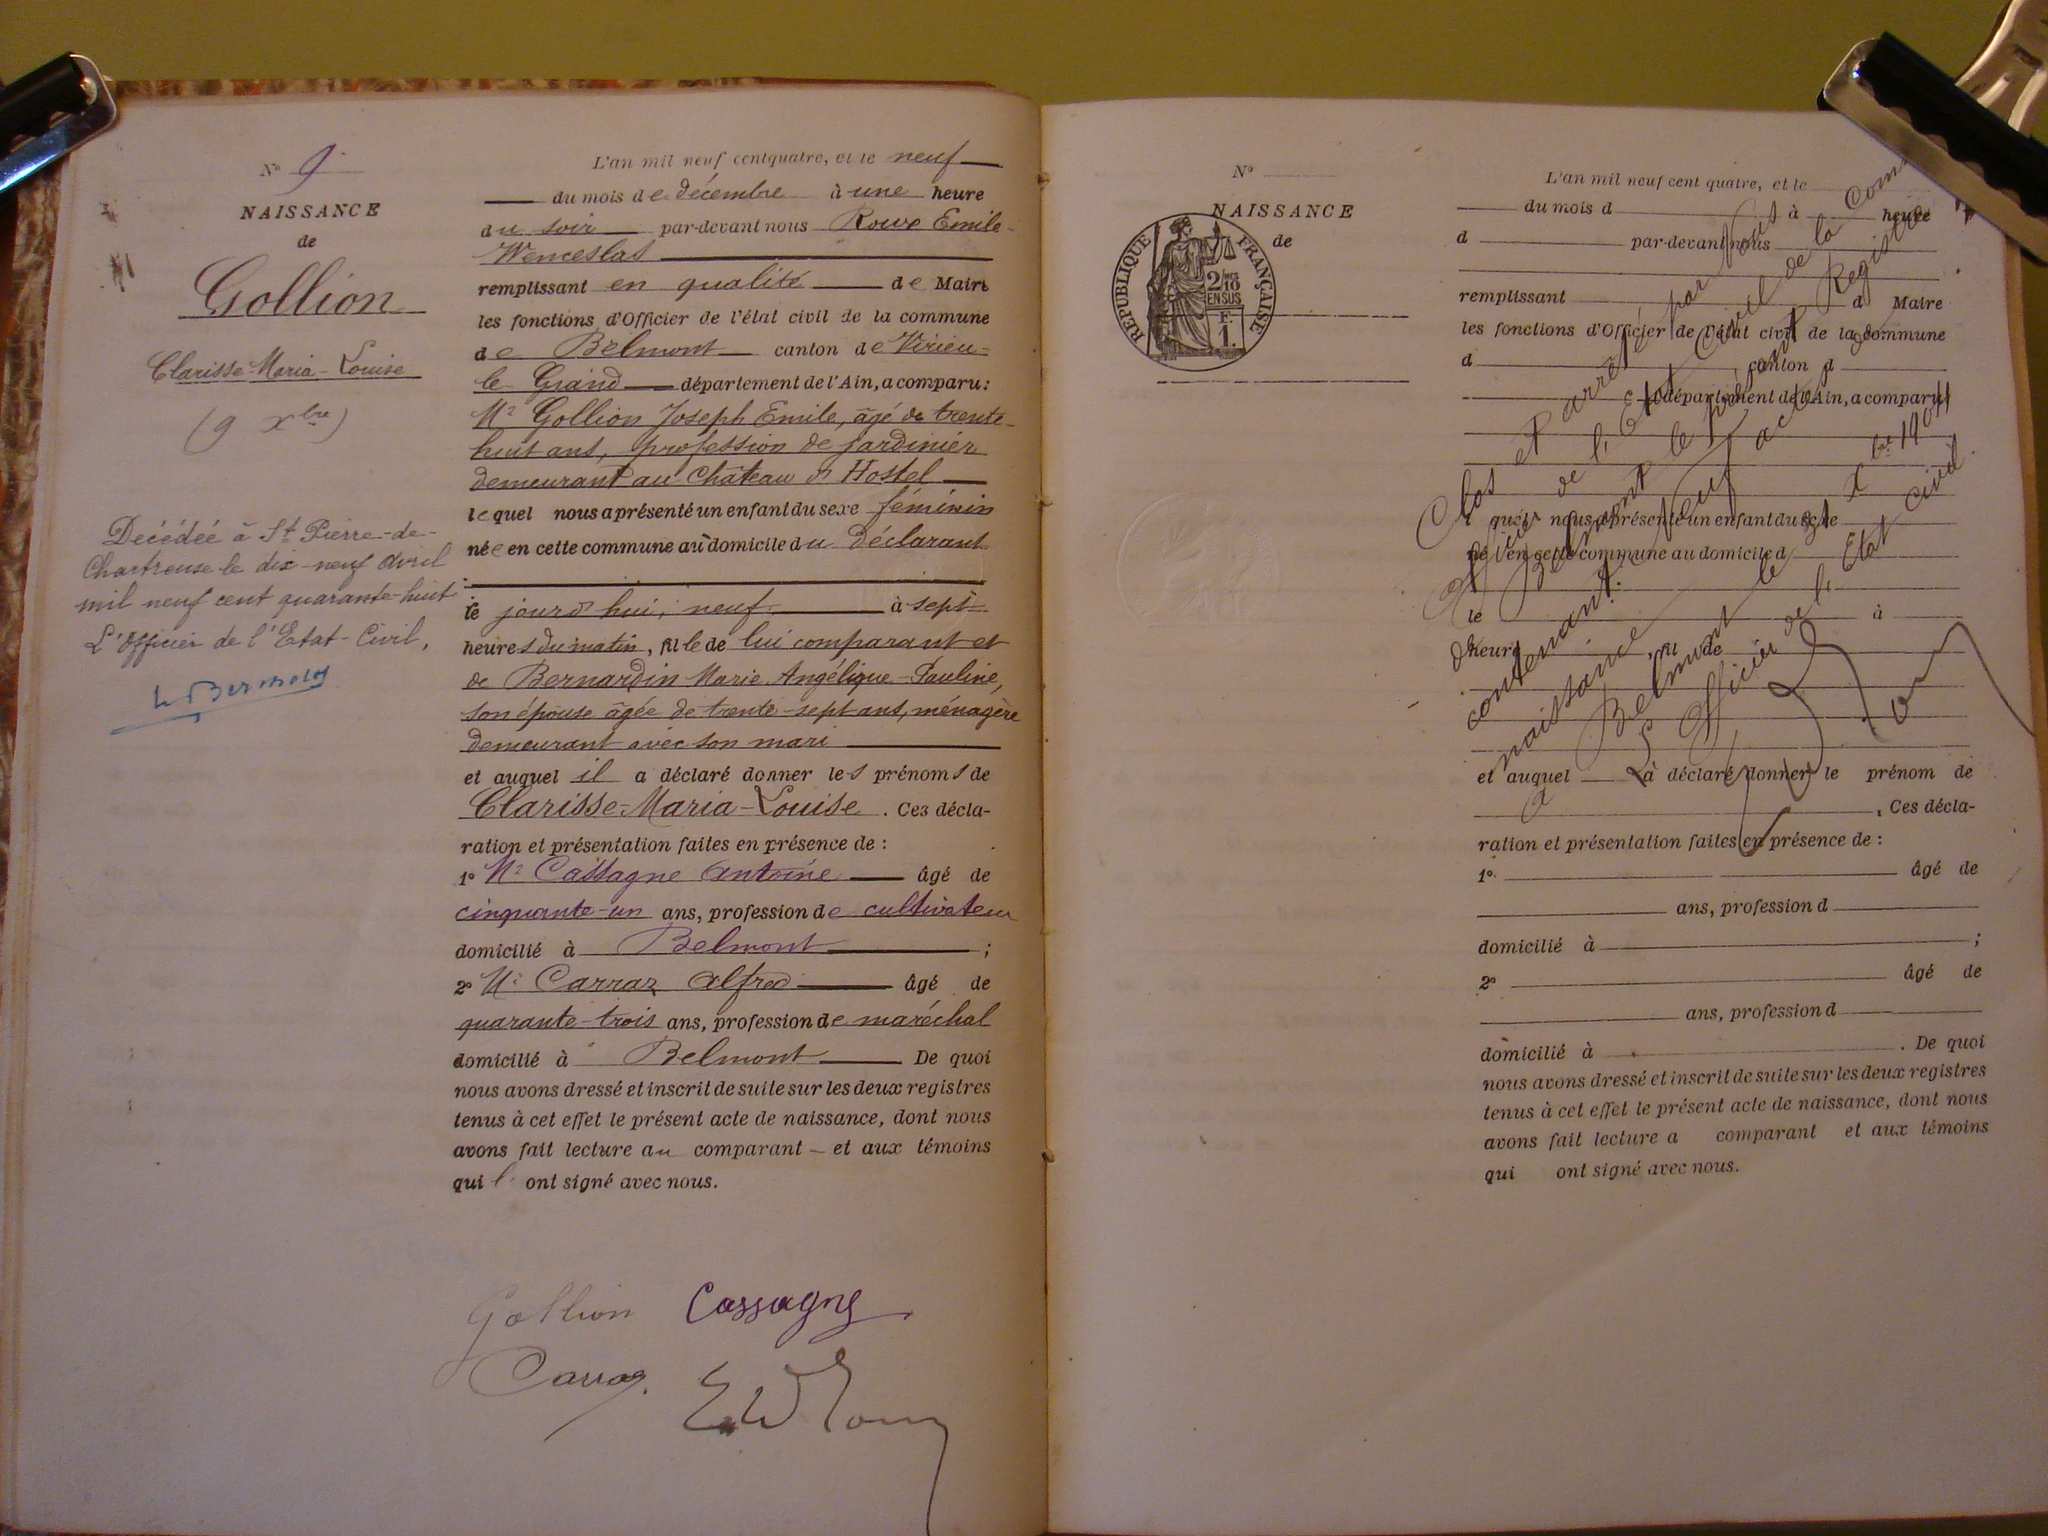 N° 9
NAISSANCE
de
Gollion
Clarisse-Maria-Louise
(9 Xbre)
Décédée à St Pierre-de-
Chartreuse le dix-neuf avril
mil neuf cent quarante-huit
L'Officier de l'Etat-Civil,
L'an mil neuf cent quatre, et le neuf
du mois de décembre à une heure
du soir par-devant nous Roux Emile-
Wenceslas
remplissant en qualité de Maire
les fonctions d'Officier de l'état civil de la commune
de Belmont canton de Virieu-
le Grand département de l'Ain, a comparu:
Mr Gollion Joseph Emile, âgé de trente-
huit ans, profession de jardinier
demeurant au Château d'Hostel
lequel nous a présenté un enfant du sexe féminin
née en cette commune au domicile du déclarant
le jourd'hui, neuf à sept
heures du matin, fille de lui comparant et
de Bernardin Marie Angélique-Pauline,
son épouse âgée de trente-sept ans, ménagère
demeurant avec son mari
et auquel il a déclaré donner les prénoms de
Clarisse-Maria-Louise. Ces décla-
ration et présentation faites en présence de :
1° Mr Cassagne Antoine âgé de
cinquante-un ans, profession de cultivateur
domicilié à Belmont ;
2° Mr Carraz Alfred âgé de
quarante-trois ans, profession de maréchal
domicilié à Belmont De quoi
nous avons dressé et inscrit de suite sur les deux registres
tenus à cet effet le présent acte de naissance, dont nous
avons fait lecture au comparant et aux témoins
qui ont signé avec nous.
Gollion Cassagne
Carraz E W Roux
N°
NAISSANCE
de
RÉPUBLIQUE FRANÇAISE
2/10
EN SUS
F.
1.
L'an mil neuf cent quatre, et le
du mois d à heure
d par-devant nous
remplissant d Maire
les fonctions d'Officier de l'état civil de la commune
d , canton d
département de l'Ain, a comparu
quel nous a présenté un enfant du sexe
né en cette commune au domicile d
le à
heure , fil de
et auquel a déclaré donner le prénom de
. Ces décla-
ration et présentation faites en présence de :
1° âgé de
ans, profession d
domicilié à ;
2° âgé de
ans, profession d
domicilié à . De quoi
nous avons dressé et inscrit de suite sur les deux registres
tenus à cet effet le présent acte de naissance, dont nous
avons fait lecture a comparant et aux témoins
qui ont signé avec nous.
Clos et arrêté par Nous
Officier de l'Etat Civil de la Com
de Belmont le présent Registre
contenant neuf actes de
naissance
à Belmont le 31 Xbre 1904
L'Officier de l'Etat Civil